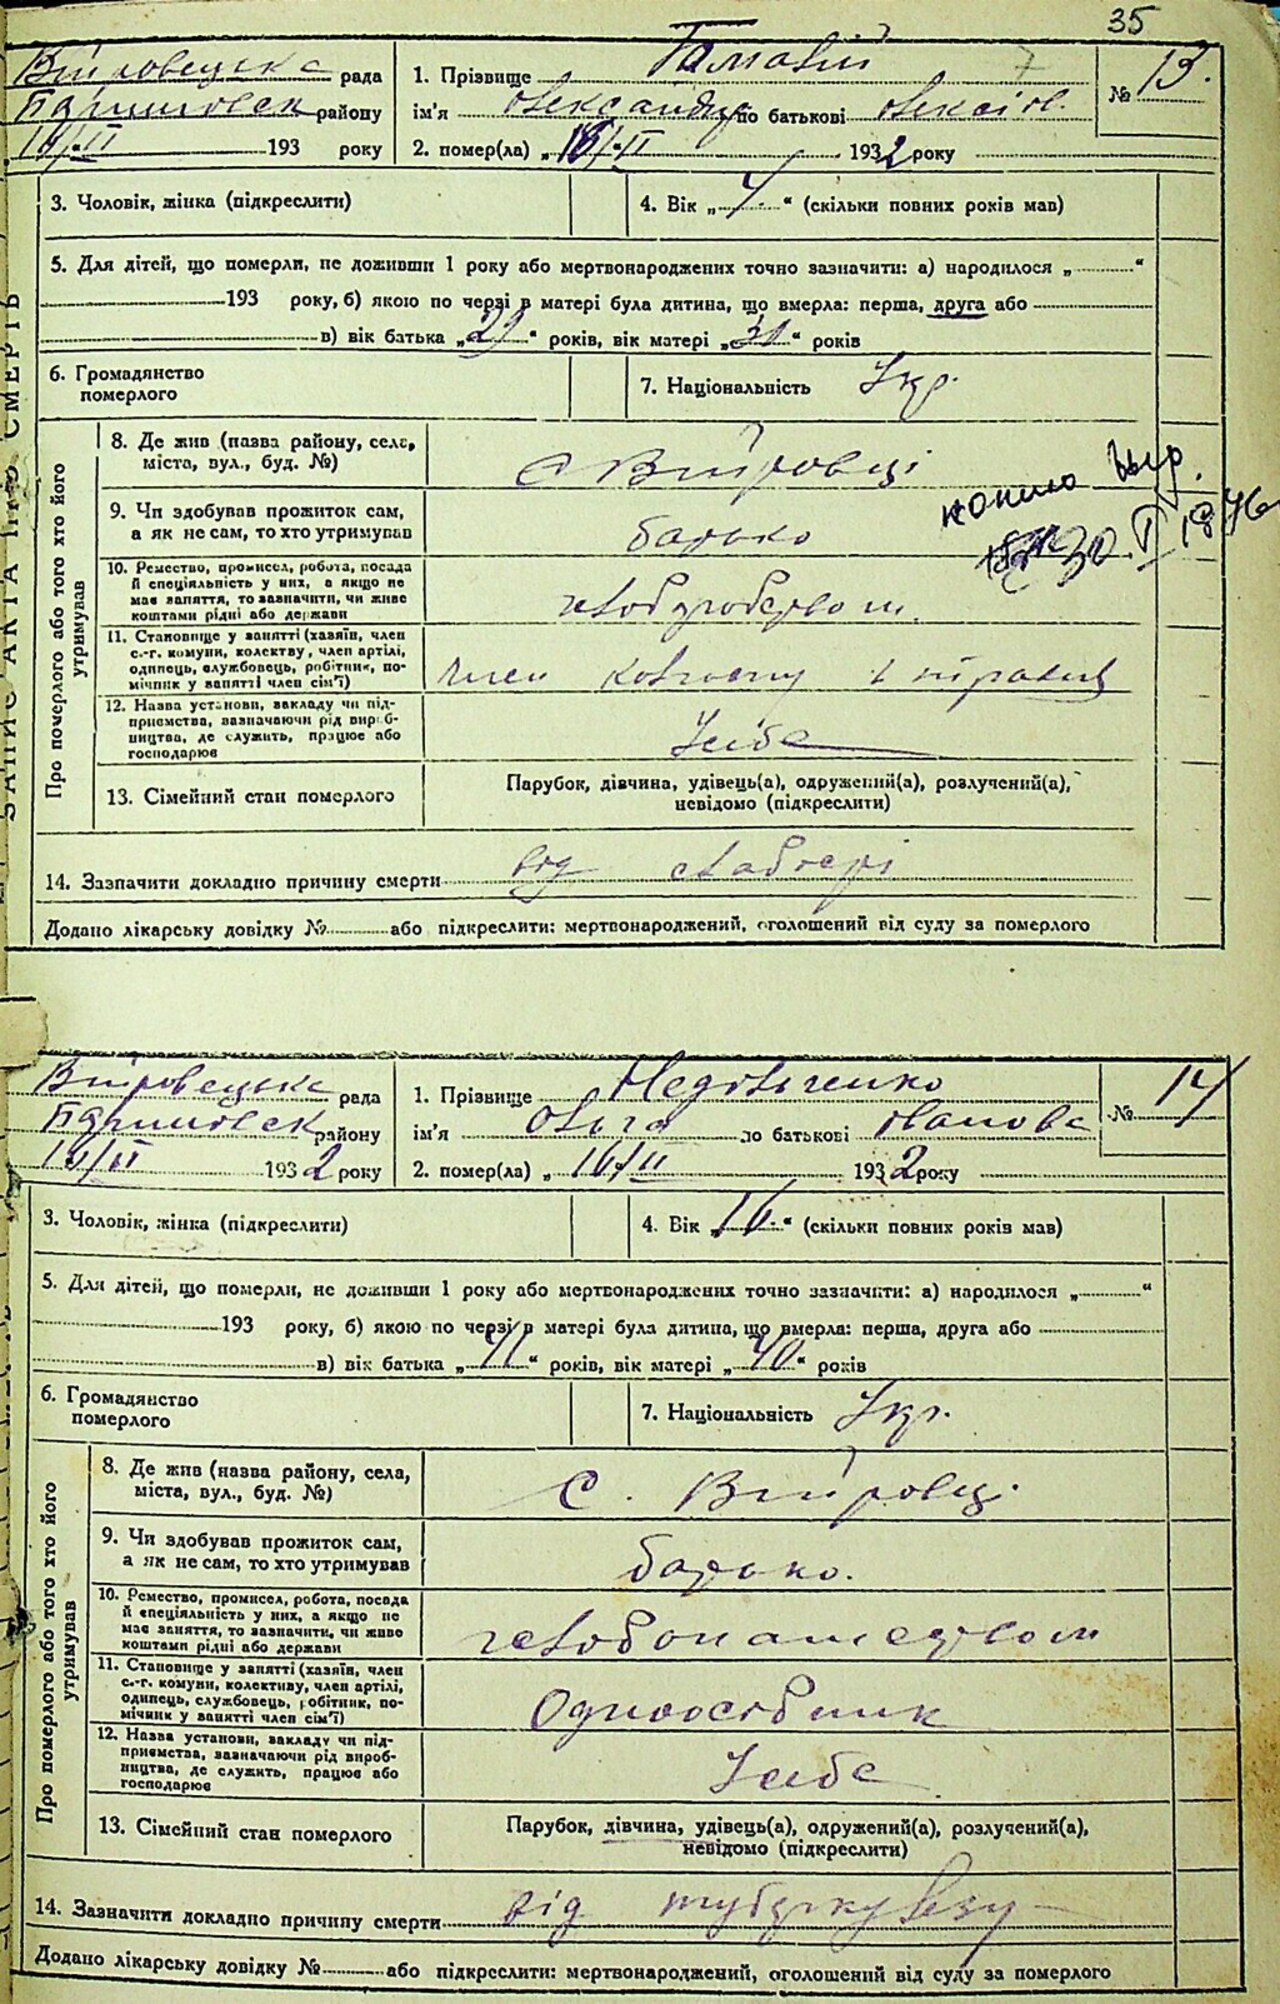 35
рада
району
193 року
1. Прізвище
№ 13.
ім'я Олександр по батькові Олексієв.
2. помер(ла) „ /II 1932 року
3. Чоловік, жінка (підкреслити)
4. Вік „ “ (скільки повних років мав)
5. Для дітей, що померли, не доживши 1 року або мертвонароджених точно зазначити: а) народилося „ “
193 року, б) якою по черзі в матері була дитина, що вмерла: перша, друга або
в) вік батька „29“ років, вік матері „31“ років
6. Громадянство
померлого
7. Національність Укр.
ЗАПИС АКТА ПРО СМЕРТЬ
Про померлого або того хто його
утримував
8. Де жив (назва району, села,
міста, вул., буд. №)
с Війтровці
9. Чи здобував прожиток сам,
а як не сам, то хто утримував
батько
10. Ремество, промисел, робота, посада
й спеціяльність у них, а якщо не
має заняття, то зазначити, чи живе
коштами рідні або держави
хліборобством
11. Становище у занятті (хазяїн, член
с.-г. комуни, колективу, член артілі,
одинець, службовець, робітник, по-
мічник у занятті член сім'ї)
член колгоспу
12. Назва установи, закладу чи під-
приємства, зазначаючи рід вироб-
ництва, де служить, працює або
господарює
У себе
13. Сімейний стан померлого
Парубок, дівчина, удівець(а), одружений(а), розлучений(а),
невідомо (підкреслити)
14. Зазначити докладно причину смерти від слабости
Додано лікарську довідку № або підкреслити: мертвонароджений, оголошений від суду за померлого
рада
району
16/II 1932 року
1. Прізвище Недільченко
№ 14
ім'я Ольга по батькові Іванова
2. помер(ла) „ 16/II 1932 року
3. Чоловік, жінка (підкреслити)
4. Вік „16.“ (скільки повних років мав)
5. Для дітей, що померли, не доживши 1 року або мертвонароджених точно зазначити: а) народилося „ “
193 року, б) якою по черзі в матері була дитина, що вмерла: перша, друга або
в) вік батька „41“ років, вік матері „40“ років
6. Громадянство
померлого
7. Національність Укр.
Про померлого або того хто його
утримував
8. Де жив (назва району, села,
міста, вул., буд. №)
с. Війтровці
9. Чи здобував прожиток сам,
а як не сам, то хто утримував
батько.
10. Ремество, промисел, робота, посада
й спеціяльність у них, а якщо не
має заняття, то зазначити, чи живе
коштами рідні або держави
хлібопашеством
11. Становище у занятті (хазяїн, член
с.-г. комуни, колективу, член артілі,
одинець, службовець, робітник, по-
мічник у занятті член сім'ї)
Одноосібник
12. Назва установи, закладу чи під-
приємства, зазначаючи рід вироб-
ництва, де служить, працює або
господарює
У себе
13. Сімейний стан померлого
Парубок, дівчина, удівець(а), одружений(а), розлучений(а),
невідомо (підкреслити)
14. Зазначити докладно причину смерти від туберкульозу
Додано лікарську довідку № або підкреслити: мертвонароджений, оголошений від суду за померлого